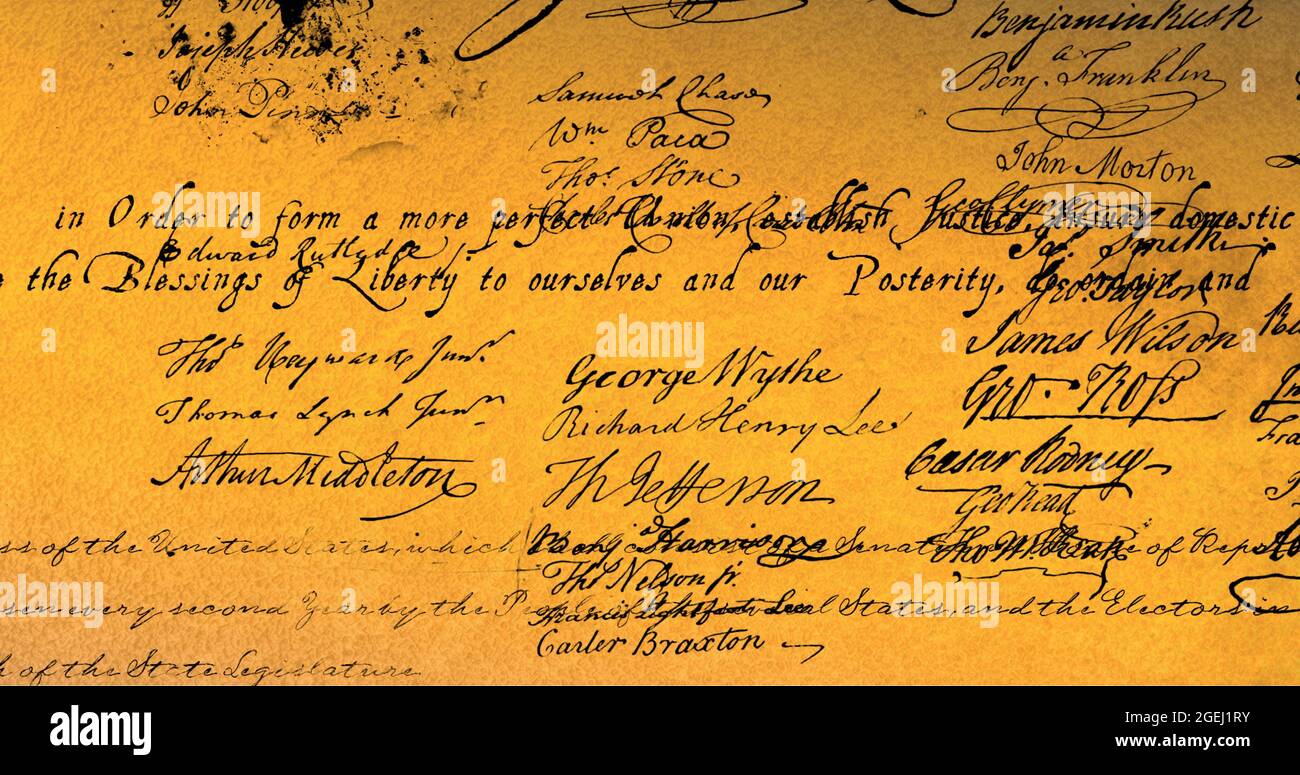 Joseph Hewes
John Penn
Edward Rutledge
Tho.s Heyward Jun.r
Thomas Lynch Jun.r
Arthur Middleton
Samuel Chase
Wm Paca
Tho.s Stone
George Wythe
Richard Henry Lee
Th Jefferson
Benj.a Harrison
Tho.s Nelson jr.
Francis Lightfoot Lee
Carter Braxton
Benjamin Rush
Benj.a Franklin
John Morton
Geo Clymer
Ja.s Smith
Geo. Taylor
James Wilson
Geo. Ross
Caesar Rodney
Geo Read
Tho M:Kean
in Order to form a more perfect Union, establish Justice, insure domestic
the Blessings of Liberty to ourselves and our Posterity, do ordain and
of the United States, which shall consist of a Senate and House of Rep
every second Year by the People of the several States, and the Electors in
of the State Legislature
alamy
Image ID: 2GEJ1RY
www.alamy.com